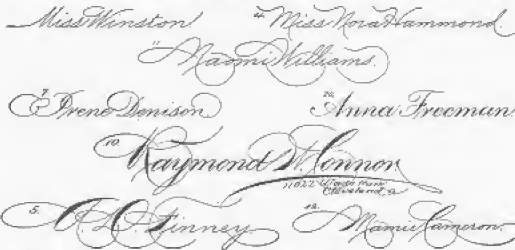 Miss Winston
Miss Nora Hammond.
11 Naomi Williams.
7. Irene Denison
20. Anna Freeman.
10. Raymond W. Connor
11022 Park
Cleveland, O
5. A. D. Finney
12. Mamie Cameron.